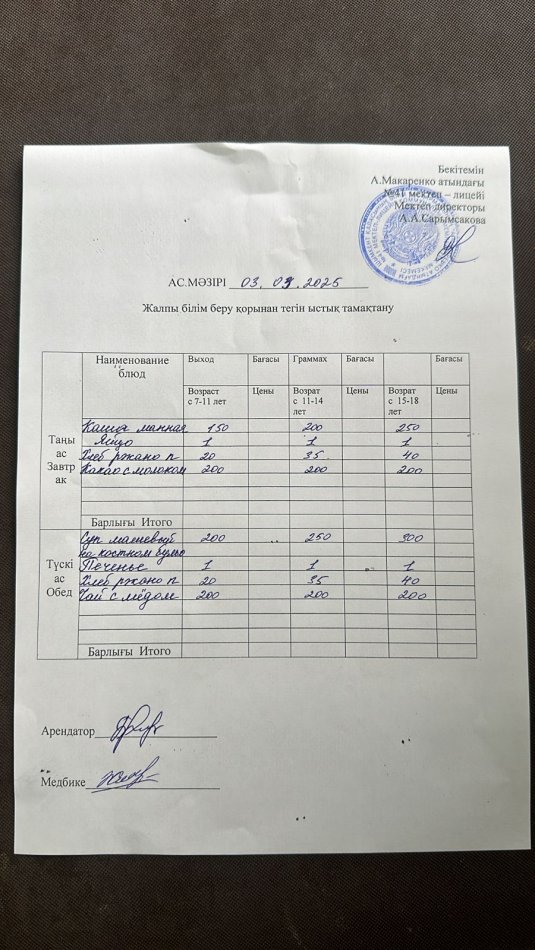 Бекітемін
А.Макаренко атындағы
№41 мектеп – лицейі
Мектеп директоры
А.А.Сарымсакова
АС.МӘЗІРІ 03.09.2025
Жалпы білім беру қорынан тегін ыстық тамақтану
Наименование блюд Выход Бағасы Граммах Бағасы Бағасы
Возраст с 7-11 лет Цены Возрат с 11-14 лет Цены Возрат с 15-18 лет Цены
Таңғы ас Завтрак
Каша манная 150 200 250
Яйцо 1 1 1
Хлеб ржано п 20 35 40
Какао с молоком 200 200 200
Барлығы Итого
Түскі ас Обед
Суп машевый 200 250 300
на костном бульо
Печенье 1 1 1
Хлеб ржано п 20 35 40
Чай с мёдом 200 200 200
Барлығы Итого
Арендатор
Медбике